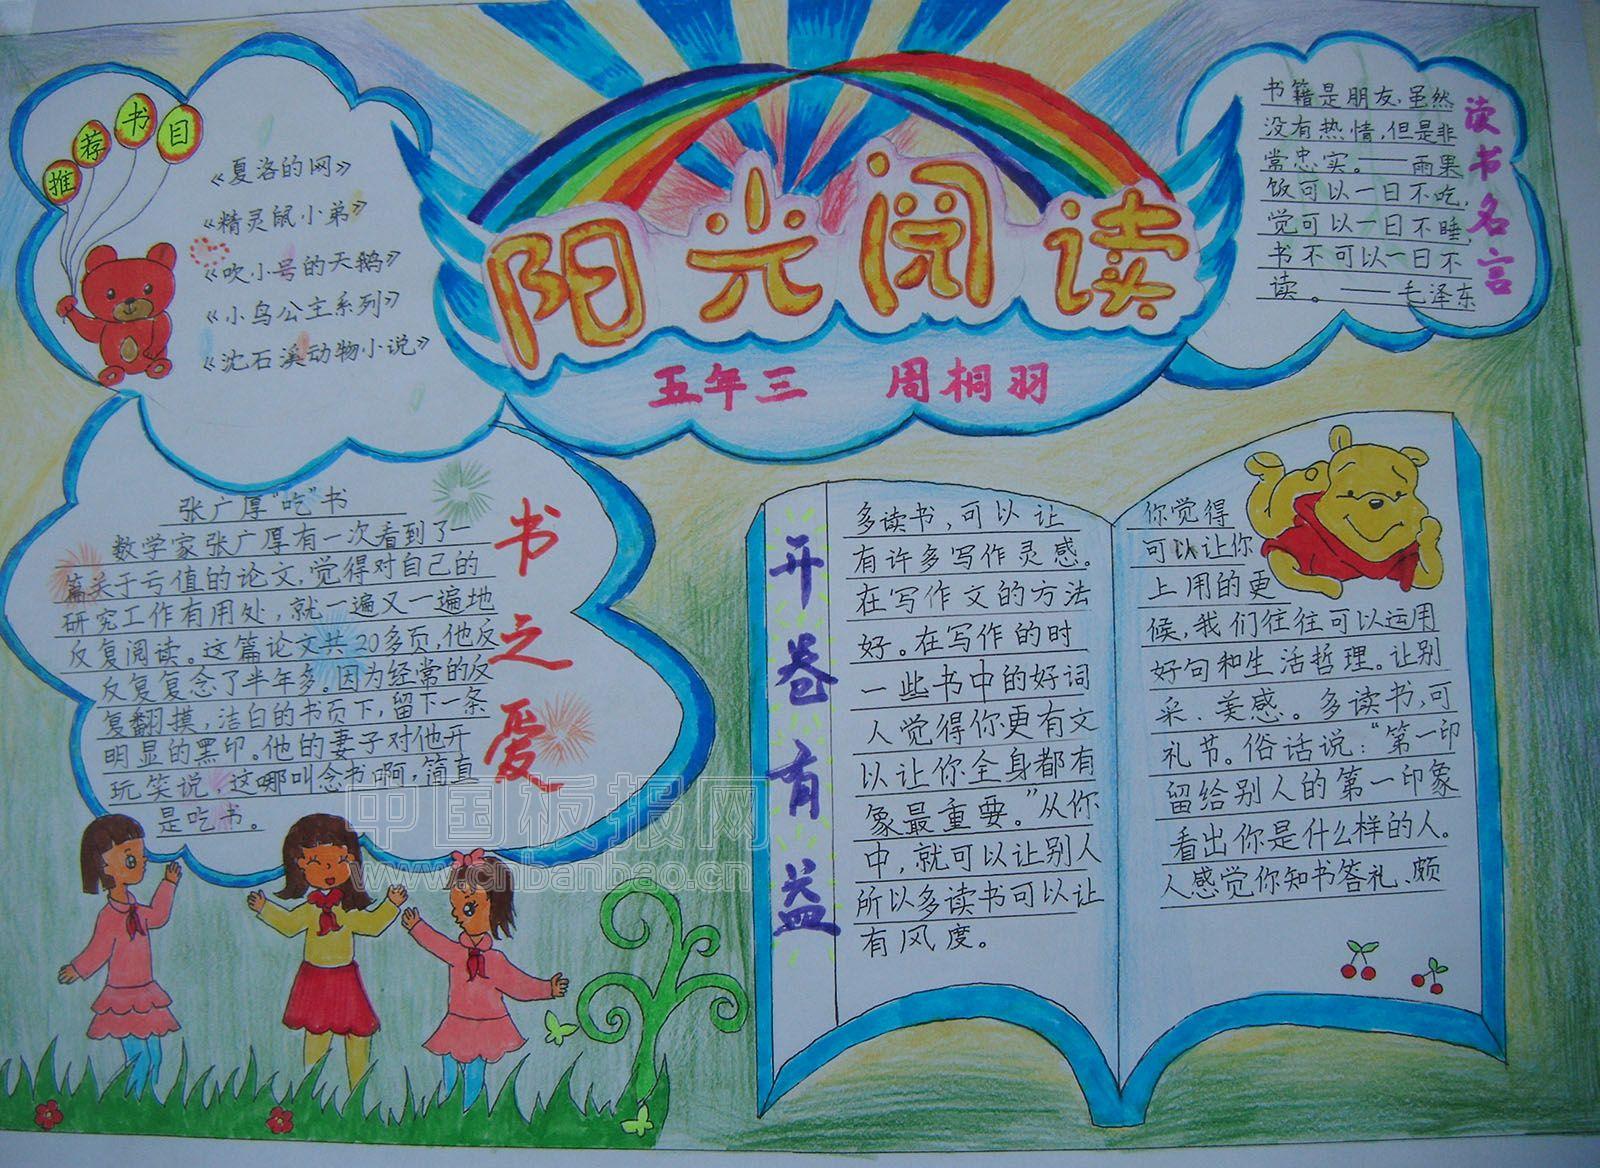 阳光阅读
五年三 周桐羽
推荐书目
《夏洛的网》
《精灵鼠小弟》
《吹小号的天鹅》
《小鸟公主系列》
《沈石溪动物小说》
读书名言
书籍是朋友,虽然
没有热情,但是非
常忠实。——雨果
饭可以一日不吃,
觉可以一日不睡,
书不可以一日不
读。——毛泽东
书之爱
张广厚"吃"书
数学家张广厚有一次看到了一
篇关于亏值的论文,觉得对自己的
研究工作有用处,就一遍又一遍地
反复阅读。这篇论文共20多页,他反
反复复念了半年多。因为经常的反
复翻摸,洁白的书页下,留下一条
明显的黑印。他的妻子对他开
玩笑说,这哪叫念书啊,简直
是吃书。
开卷有益
多读书,可以让
有许多写作灵感。
在写作文的方法
好。在写作的时
一些书中的好词
人觉得你更有文
以让你全身都有
象最重要。"从你
中,就可以让别人
所以多读书可以让
有风度。
你觉得
可以让你
上用的更
候,我们往往可以运用
好句和生活哲理。让别
采、美感。多读书,可
礼节。俗话说:"第一印
留给别人的第一印象
看出你是什么样的人。
人感觉你知书答礼、颇
中国板报网
www.cnbanbao.cn